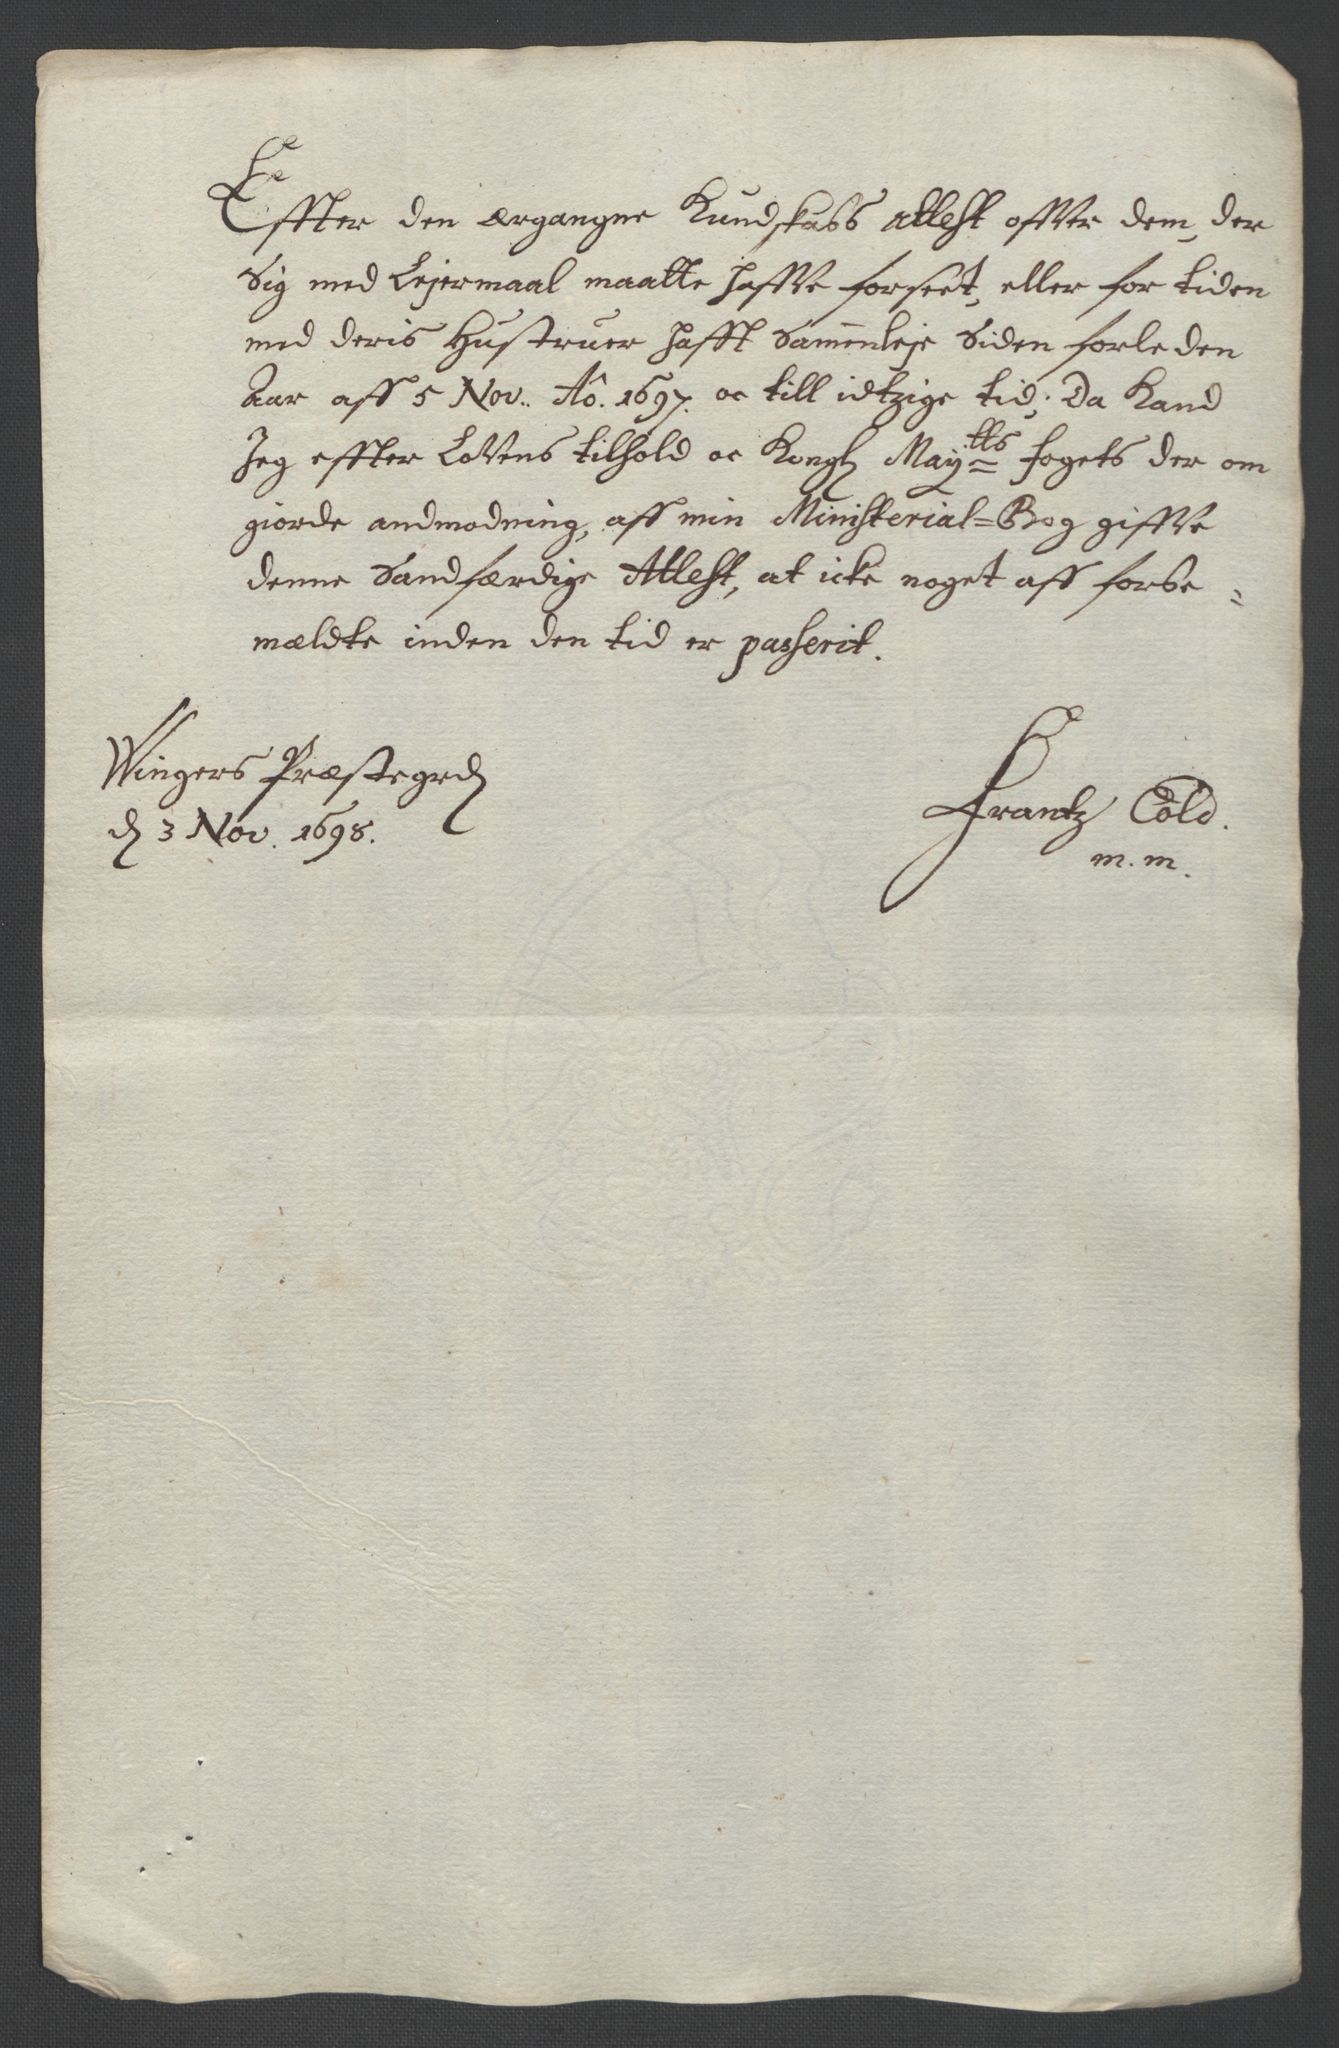 Effter den ærgangne Kundskabs attest offver dem, der
Sig med Lejermaal maatte haffve forseet, eller for tiden
med deris Hustruer hafft Sammenleje Siden forleden
Aar aff 5 Nov. Aô. 1697. oc till idtzige tid; Da Kand
Jeg effter Lovens tilhold oc Kongl Maytts fogets der om
giorde andmodning, aff min Ministerial=Bog giffve
denne Sandfærdige Attest, at icke noget aff forbe=
mældte inden den tid er passerit.
Wingers Præstegrd
d 3 Nov. 1698.
Frantz Cold.
m. m.